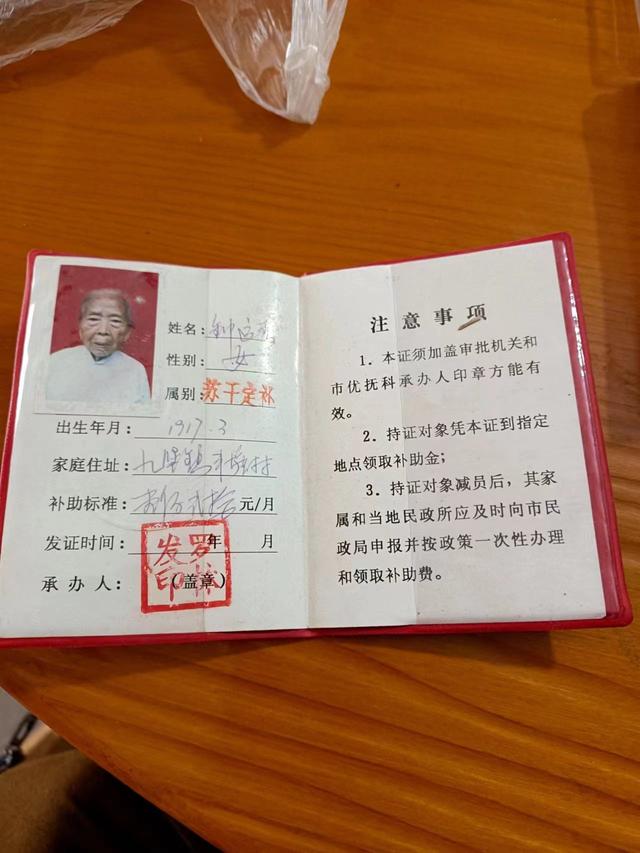 姓名：钟
性别：女
属别：苏干定补
出生年月：1917.3
家庭住址：九堡镇村
补助标准：元/月
发证时间：年 月
承办人：（盖章）
罗林发印
注意事项
1．本证须加盖审批机关和
市优抚科承办人印章方能有
效。
2．持证对象凭本证到指定
地点领取补助金；
3．持证对象减员后，其家
属和当地民政所应及时向市民
政局申报并按政策一次性办理
和领取补助费。